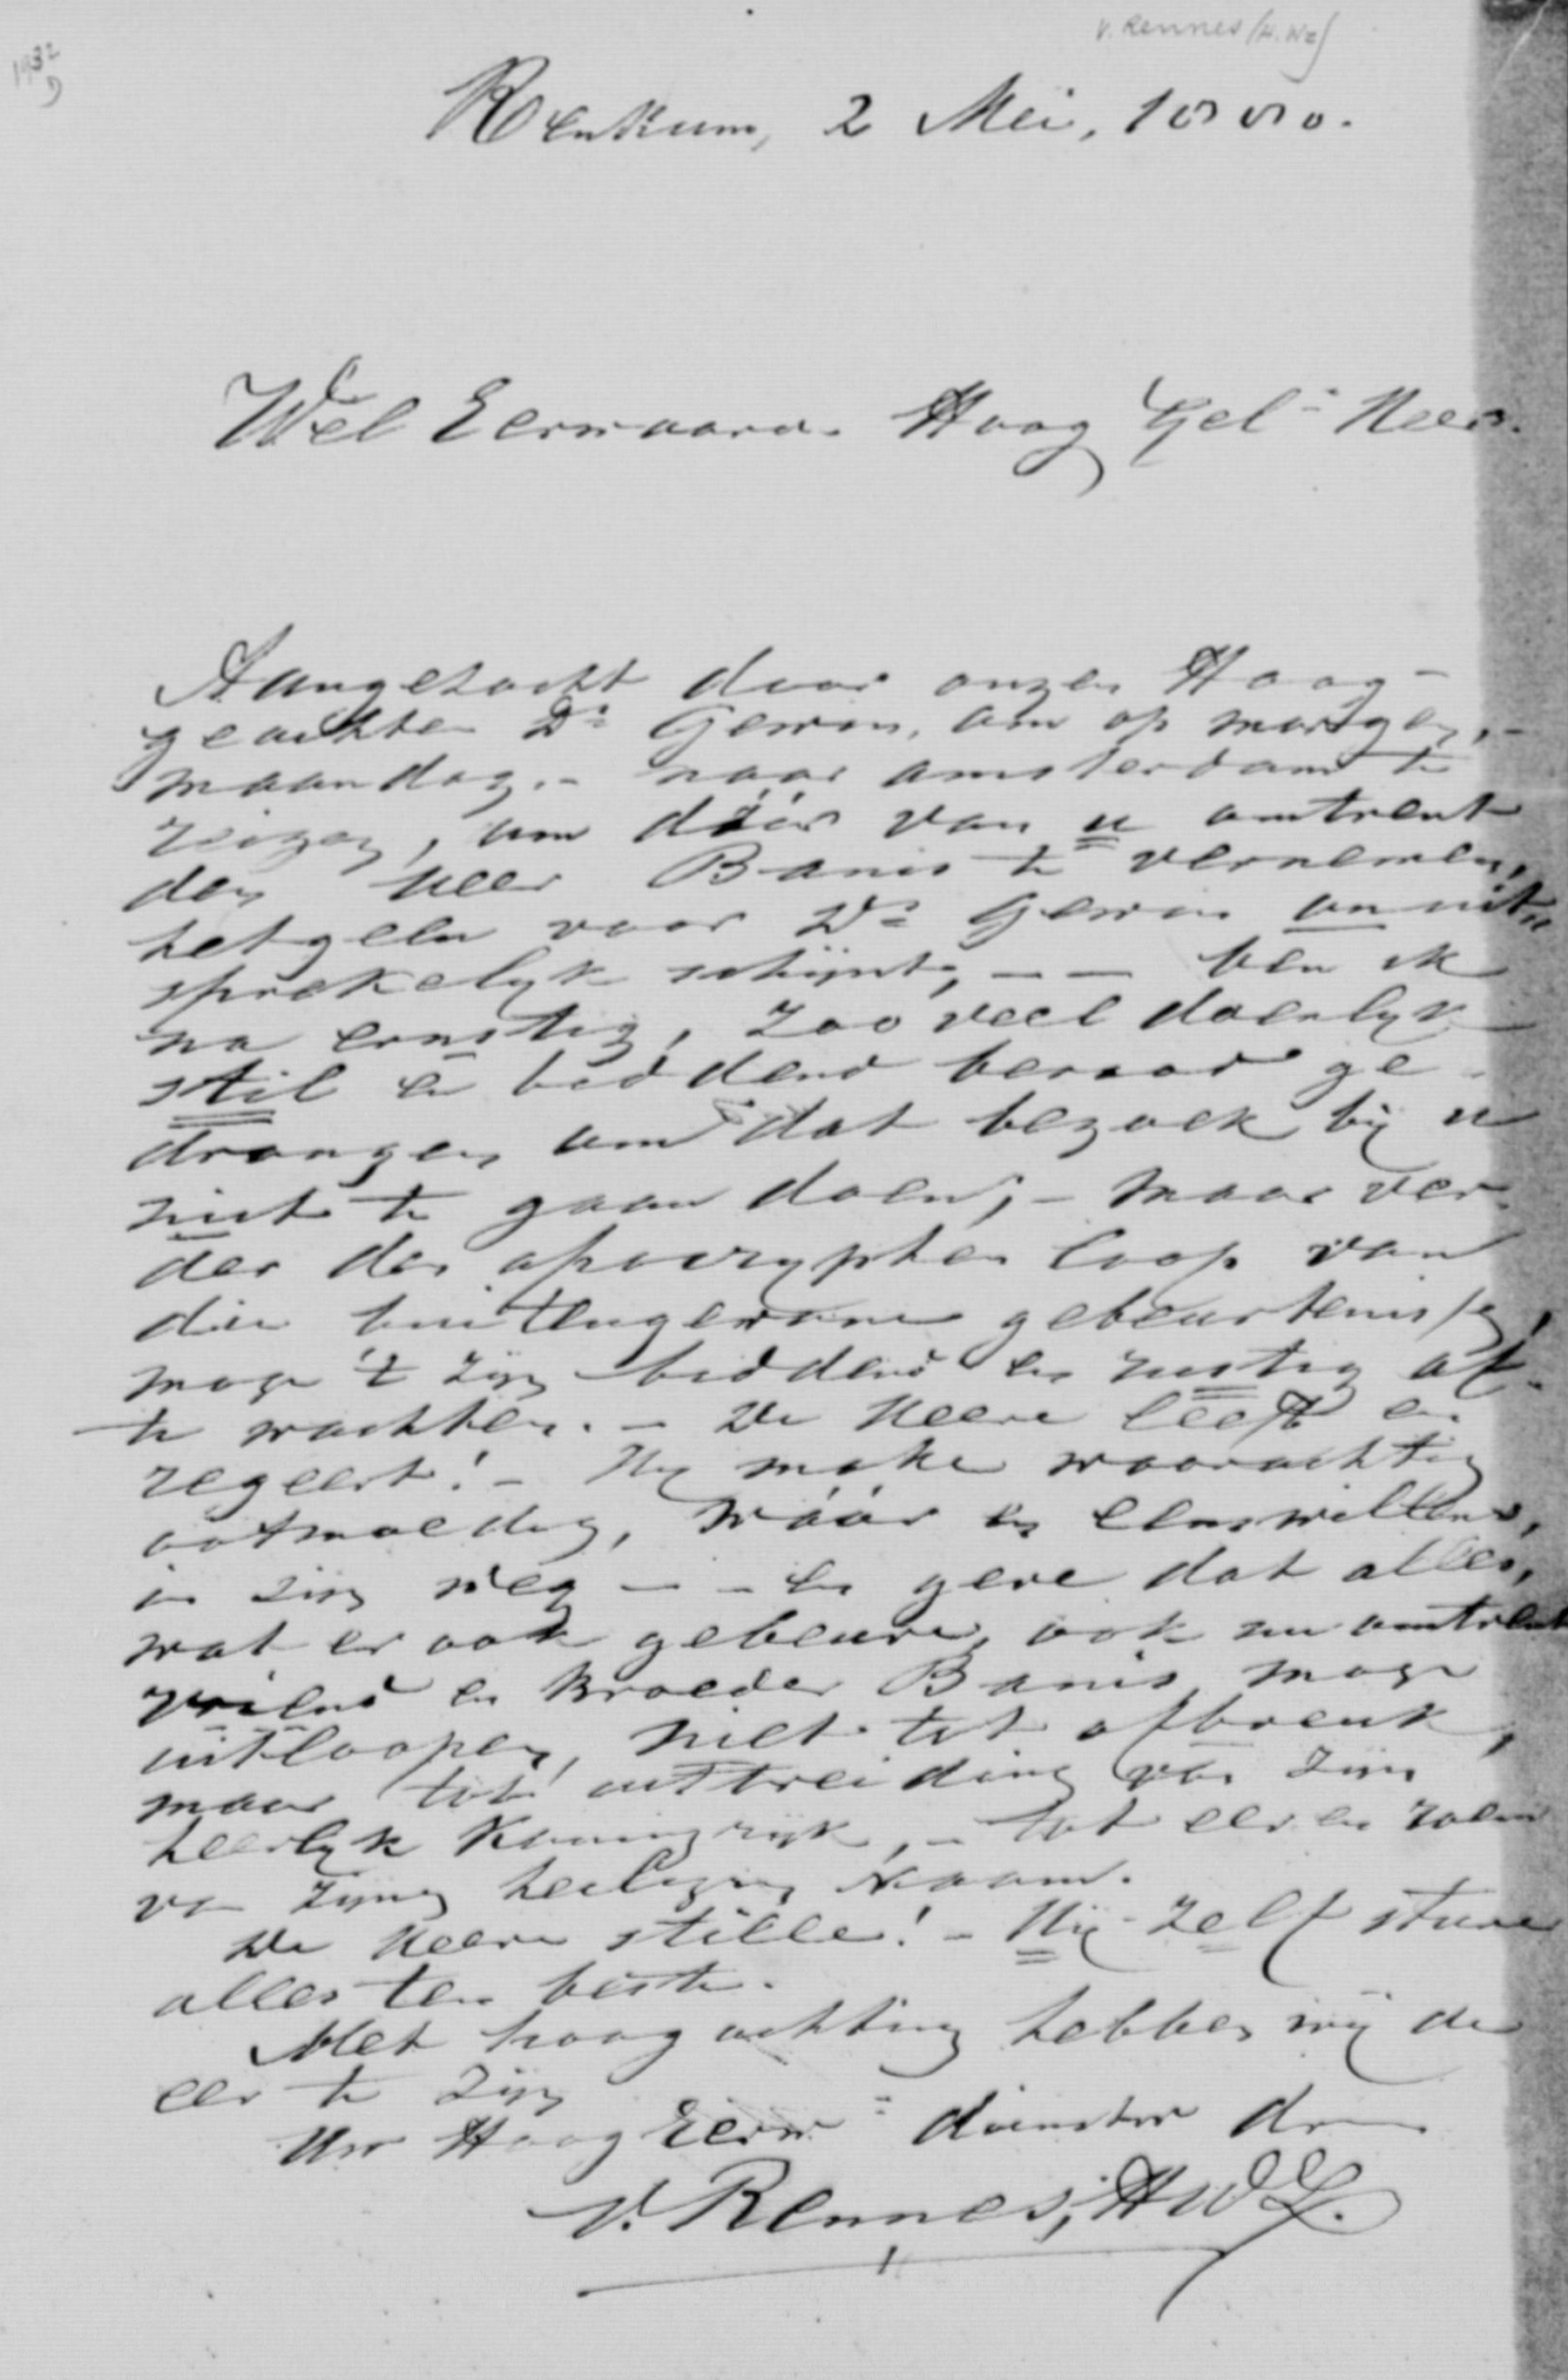 v. Rennes (H.Wz)
1932
Renkum, 2 Mei, 1880.
WelEerwaard. Hoog Gel. Heer.
Aangezocht door onzen Hoog-
geachten Ds Gewin, om op morgen,-
maandag.- naar Amsterdam te
reizen, om dáár van u omtrent
den heer Banis te vernemen,
hetgeen voor Ds Gewin onuit-
sprekelyk schijnt, - - ben ik
na ernstig, zooveel doenlyk
stil en biddend beraad ge-
drongen om dat bezoek bij u
niet te gaan doen; - maar ver-
der den apocryphen loop van
die buitengewone gebeurtenissen,
moge 't zijn biddend en rustig af
te wachten. - De Heere leeft en
regeert! - Hij make waarachtig
ootmoedig, wáár en eenswillend,
in zijn weg - - En geve dat alles,
wat er ook gebeure, ook nu omtrent
vriend en broeder Banis moge
uitloopen, niet tot afbreuk,
maar tot uitbreiding van Zijn
heerlyk Koningryk, - tot eer en roem
van Zijnen heiligen Naam.
De Heere stille! - Hij-zelf sture
alles ten beste.
Met hoogachting hebben wij de
eer te zijn
Uw HoogEerw. dienstw dr
v. Rennes, HWz.